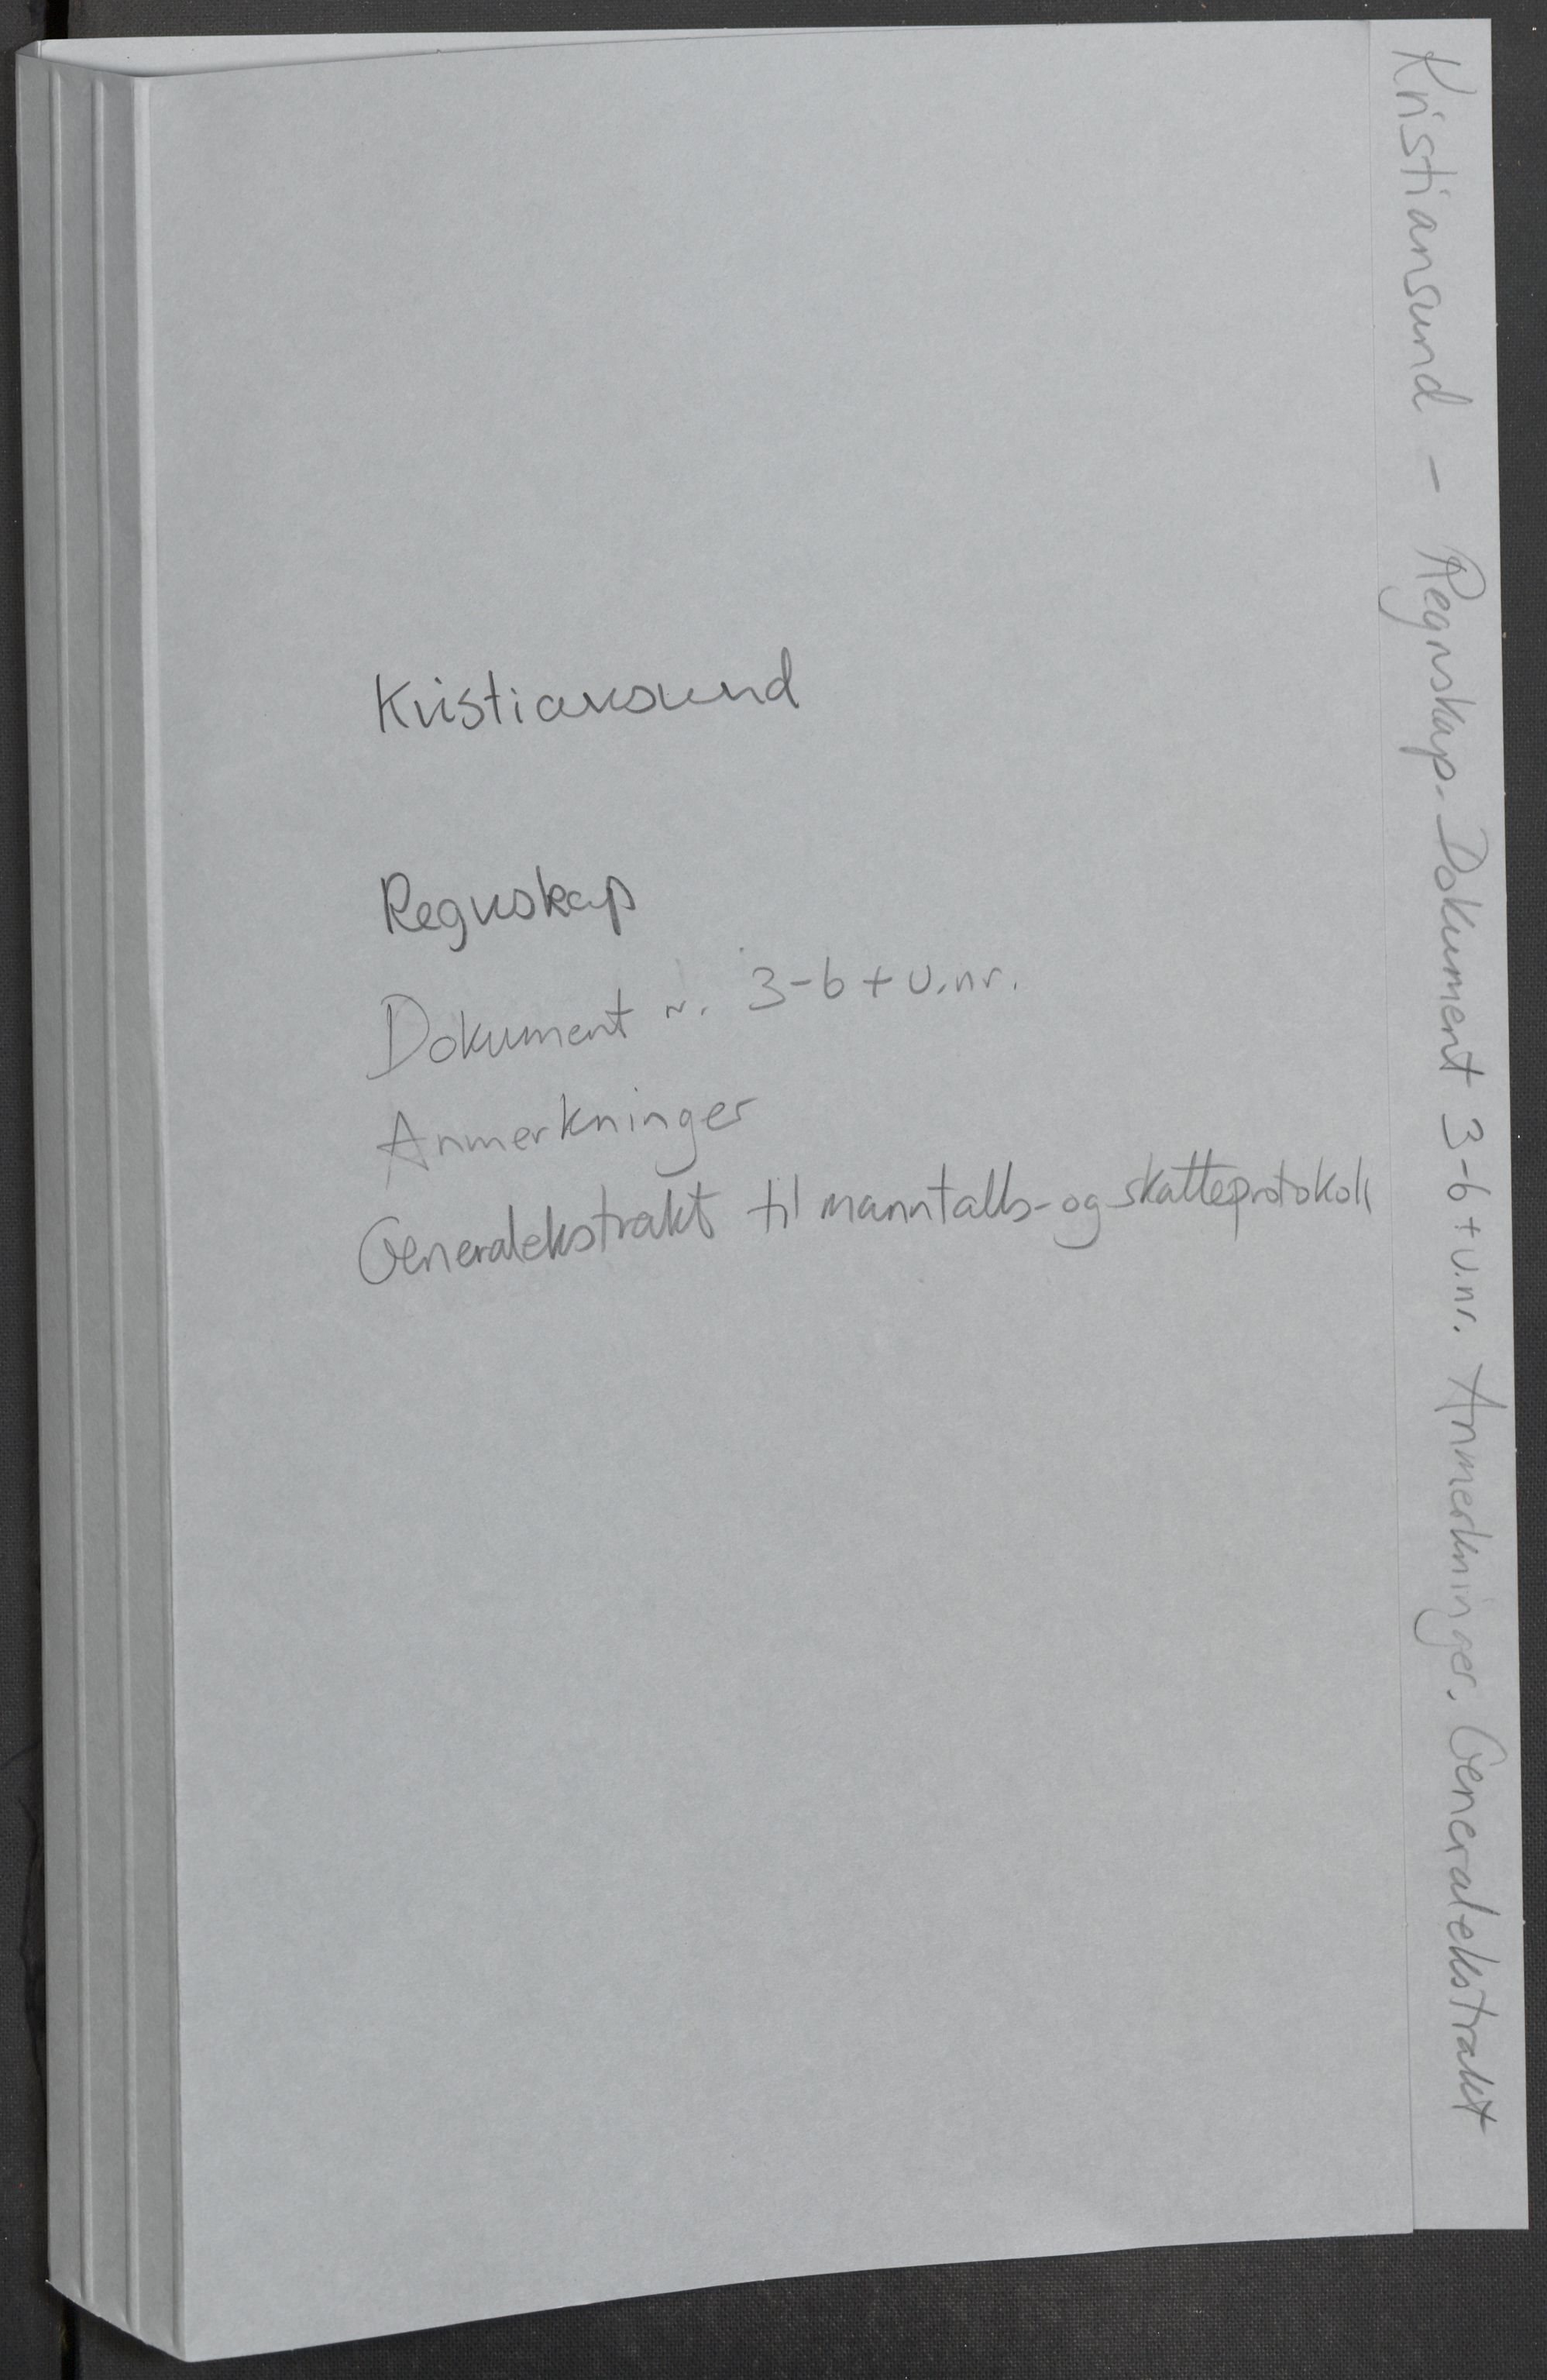 Kristiansund
Regnskap
Dokument nr. 3-6 + u.nr.
Anmerkninger
Generalekstrakt til manntalls-og skatteprotokoll
Kristiansund - Regnskap. Dokument 3-6 + u.nr. Anmerkninger. Generalekstrakt